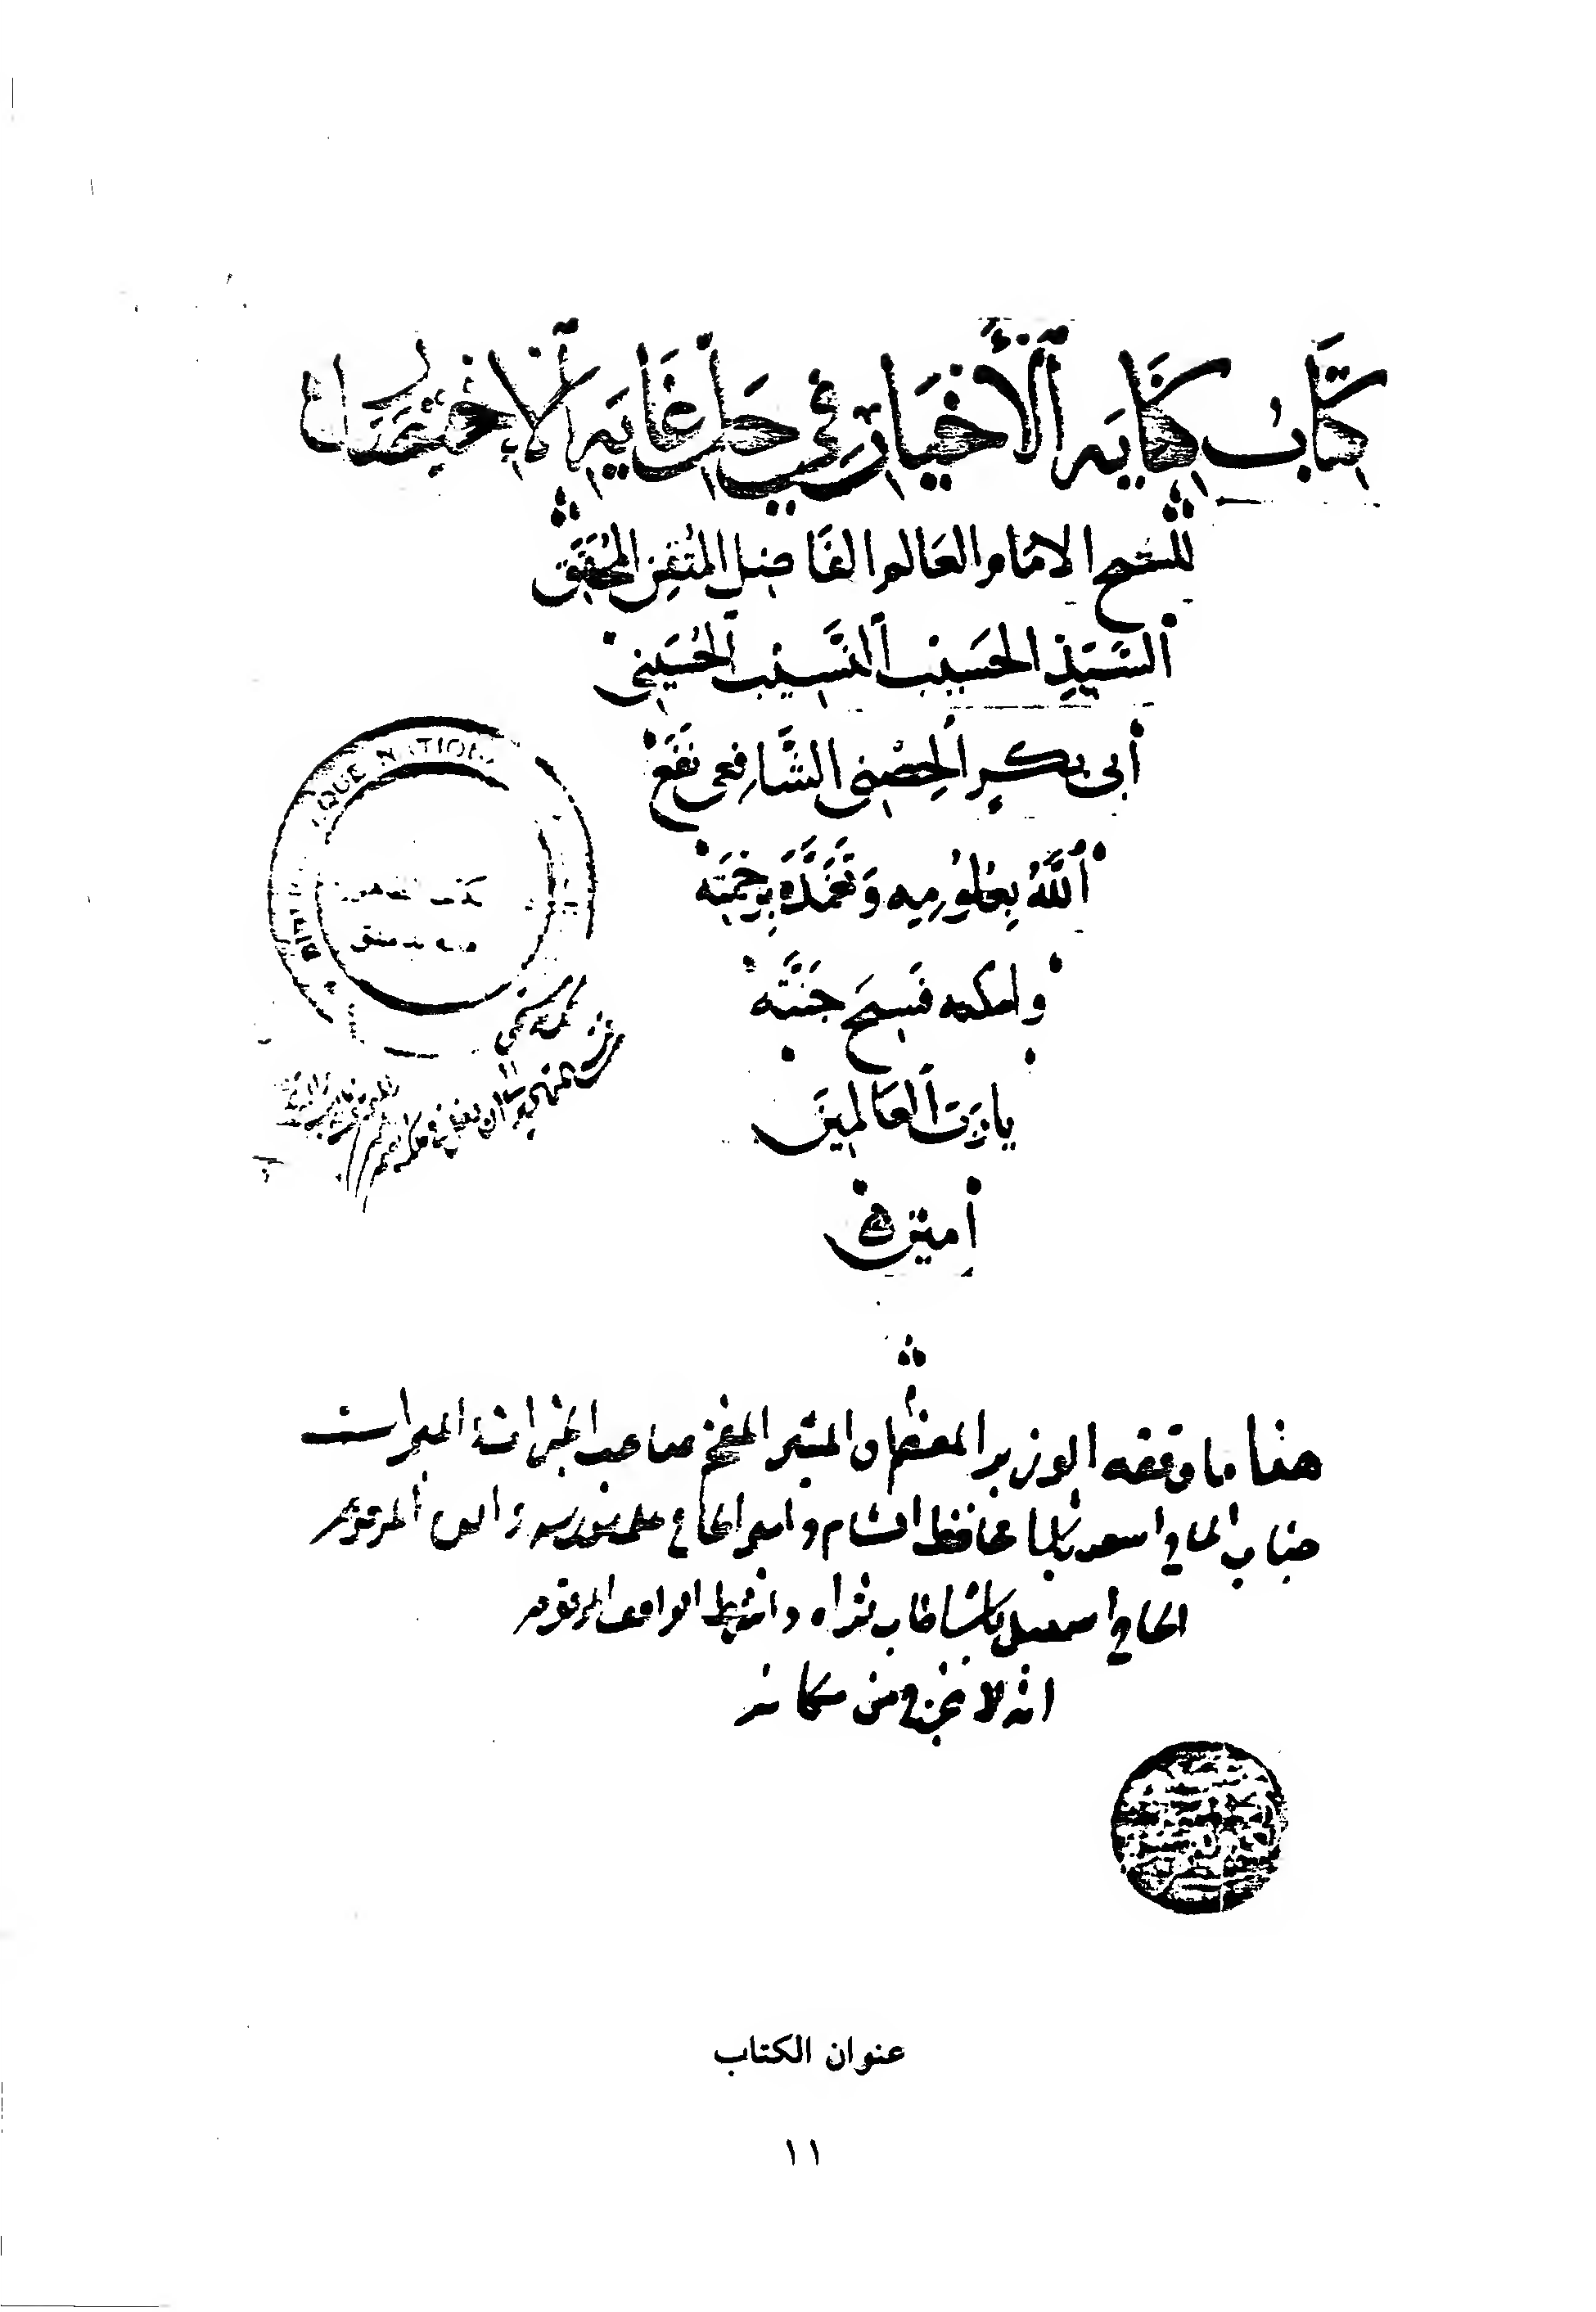 كِتَابُ كِفَايَة ٱلْأَخْيَار فِي حَلّ غَايَة ٱلْاِخْتِصَار
للشيخ الامام العالم الفاضل المتقن المحقق
السَّيِّد الحسيب النَّسيب الحُسَيني
أبى بكر الحِصْنى الشَّافعى نَفَعَ
ٱللَّهُ بِعُلُومِه وَتَغَمَّدَهُ بِرَحْمَتِهِ
واسكنه فَسِيحَ جَنَّتِه
يا رَبَّ ٱلْعَالمِينَ
أمين
هذا ما وقفه الوزير المعظم والمشير المفخم صاحب الخيرات والمبرات
جناب الحاج اسعد باشا محافظ الشام وامير الحاج على مدرسة والده المرحوم
الحاج اسمعيل باشا طاب ثراه وشرط الواقف المرقوم
انه لا يخرج من مكانه
QUE NATION
بدمشق
عنوان الكتاب
١١